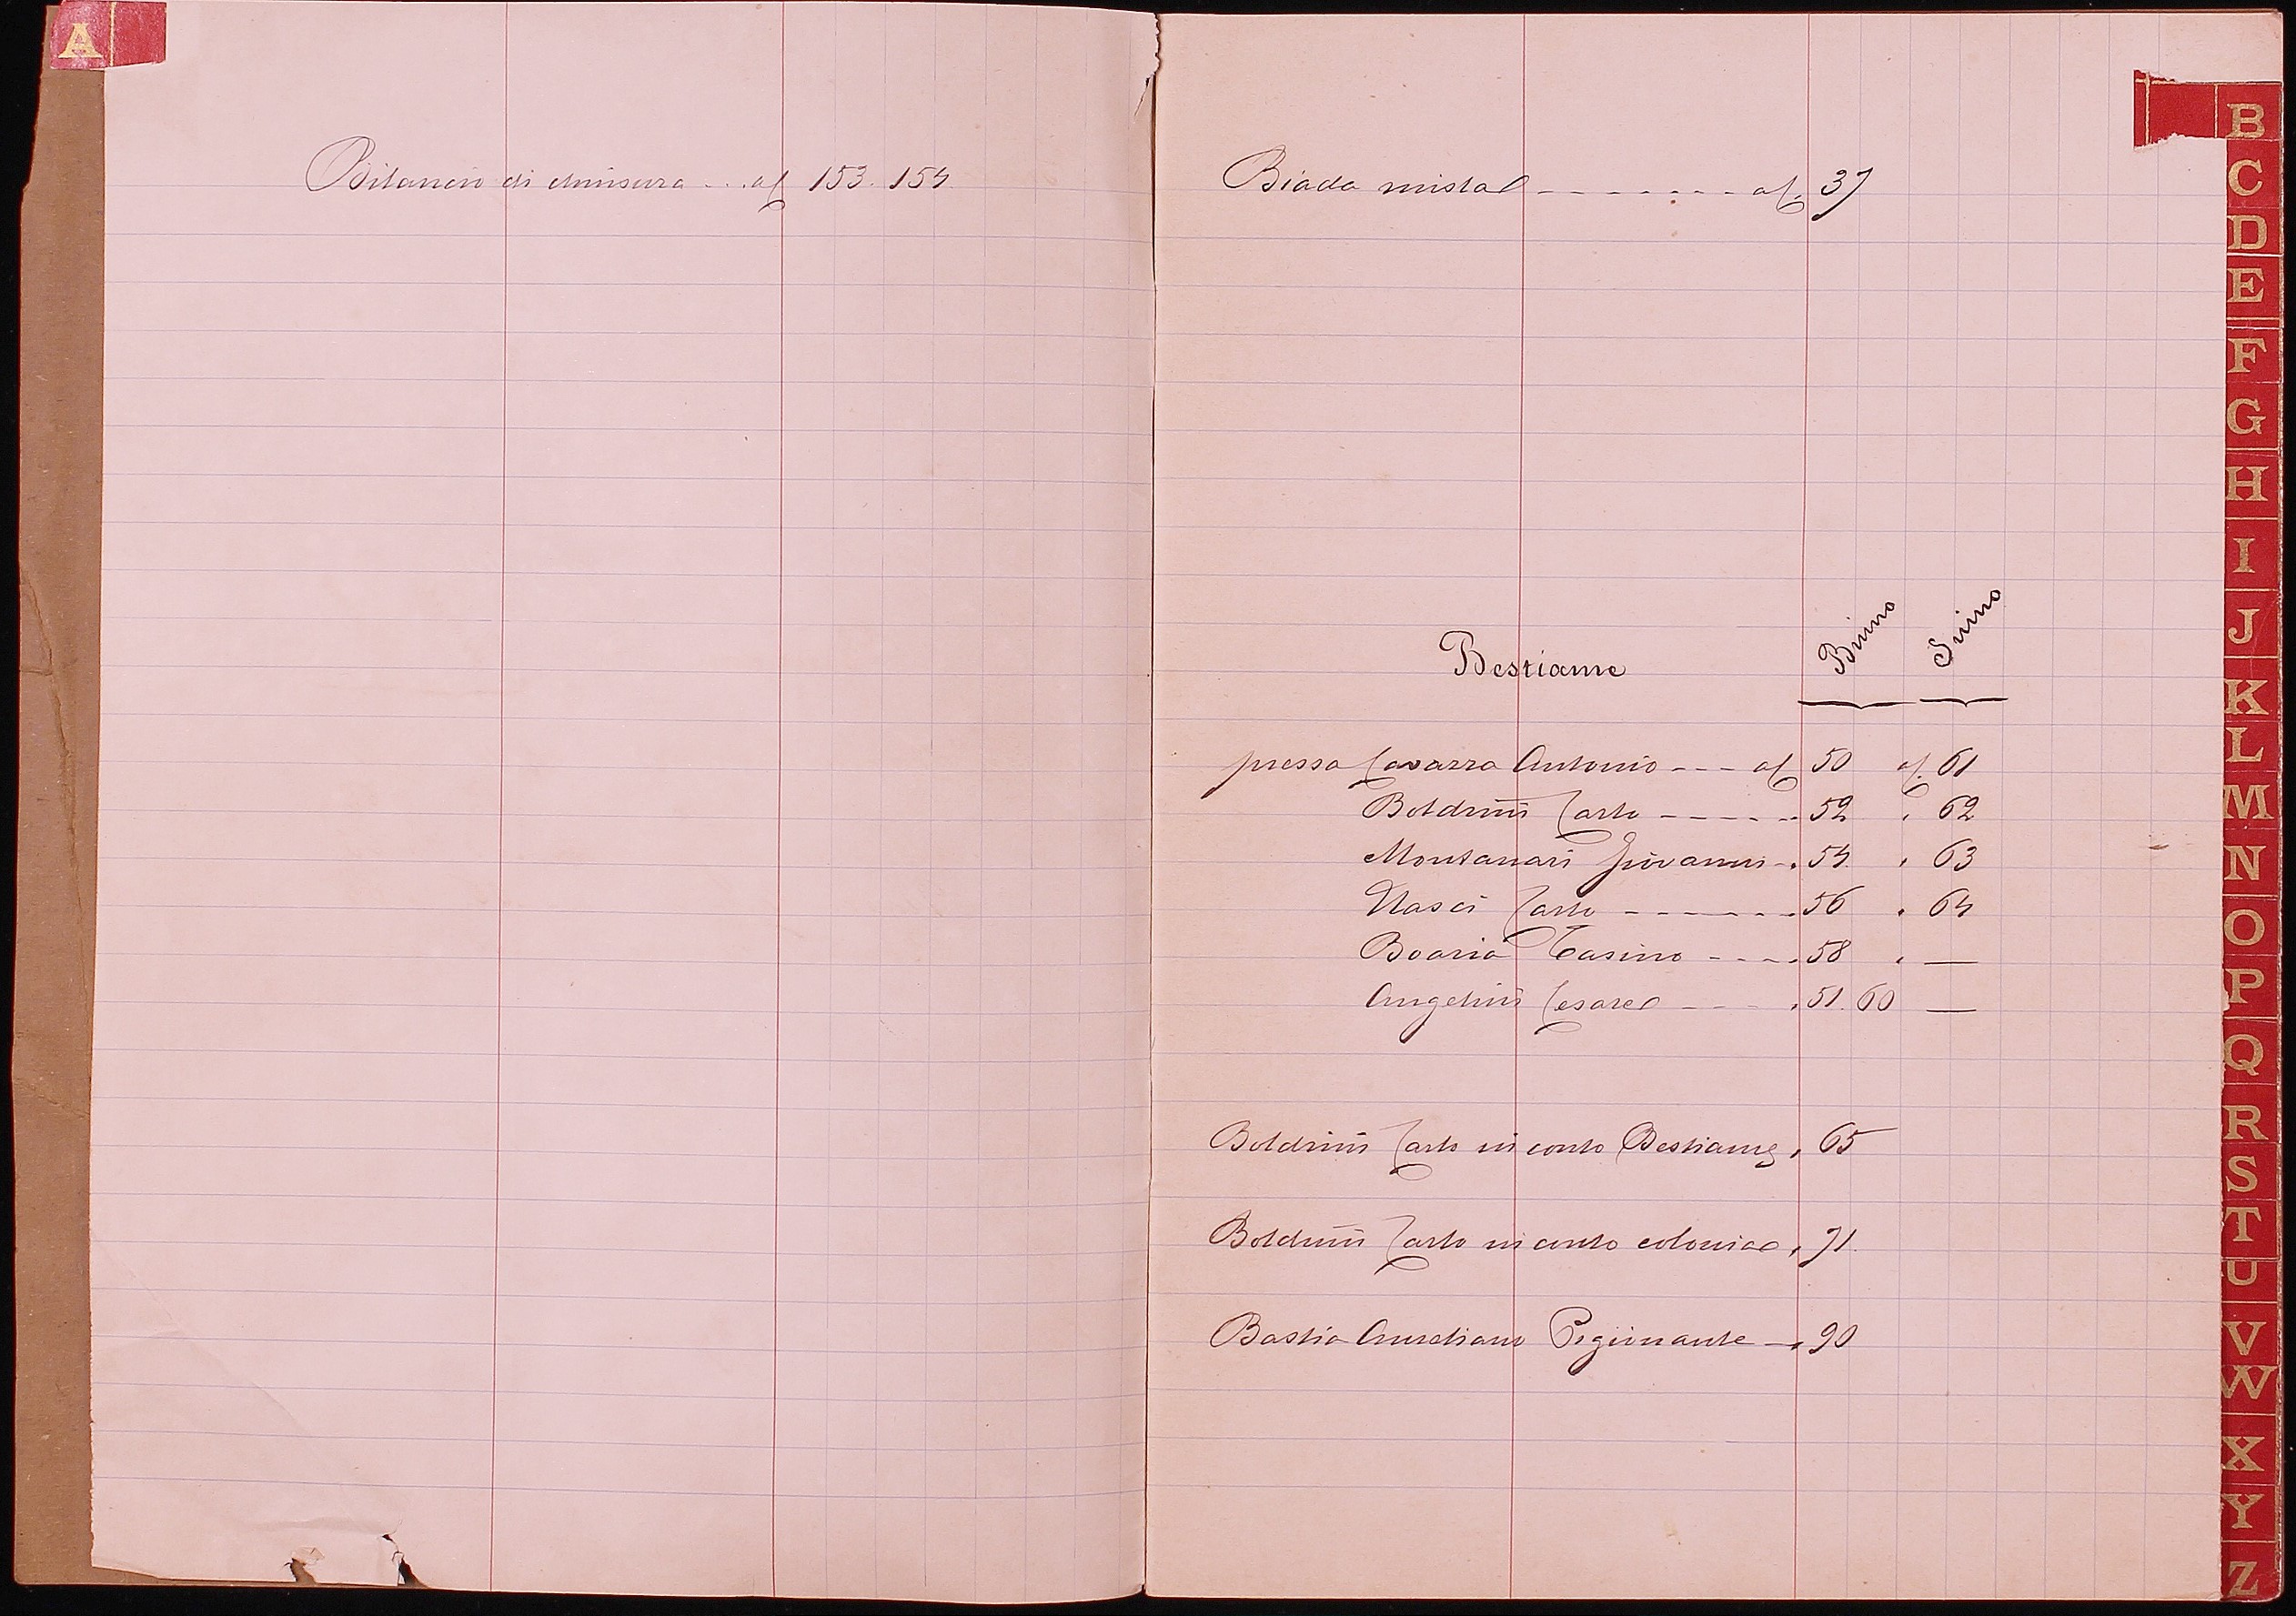 A
Bilancio di chiusura - - - af 153. 154
Biada mista - - - - - - - af. 37
Bestiame
Bovino
Suino
presso Cavazza Antonio - - - af 50 af. 61
Boldrini Carlo - - - - - 52 " 62
Montanari Giovanni - " 54 " 63
Nasci Carlo - - - - - - - 56 " 64
Boaria Casino - - - - 58 " —
Angelini Cesare - - - - " 51. 60 —
Boldrini Carlo in conto Bestiame " 65
Boldrini Carlo in conto colonico " 71.
Bastia Aureliano Pigionante — " 90
B
C
D
E
F
G
H
I
J
K
L
M
N
O
P
Q
R
S
T
U
V
W
X
Y
Z